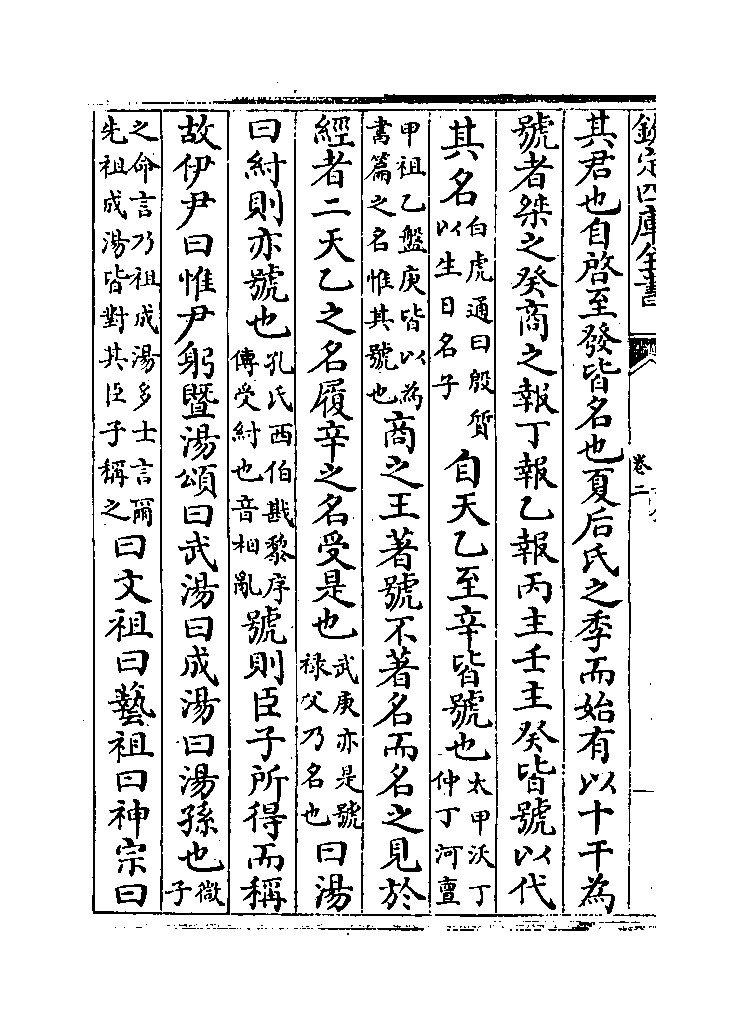 欽定四庫全書 卷二
其君也自啓至發皆名也夏后氏之季而始有以十干為
號者桀之癸商之報丁報乙報丙主壬主癸皆號以代
其名白虎通曰殷質以生日名子自天乙至辛皆號也太甲沃丁仲丁河亶
甲祖乙盤庚皆以為書篇之名惟其號也商之王著號不著名而名之見於
經者二天乙之名履辛之名受是也武庚亦是號祿父乃名也曰湯
曰紂則亦號也孔氏西伯戡黎序傳受紂也音相亂號則臣子所得而稱
故伊尹曰惟尹躬暨湯頌曰武湯曰成湯曰湯孫也微子
之命言乃祖成湯多士言爾先祖成湯皆對其臣子稱之曰文祖曰藝祖曰神宗曰